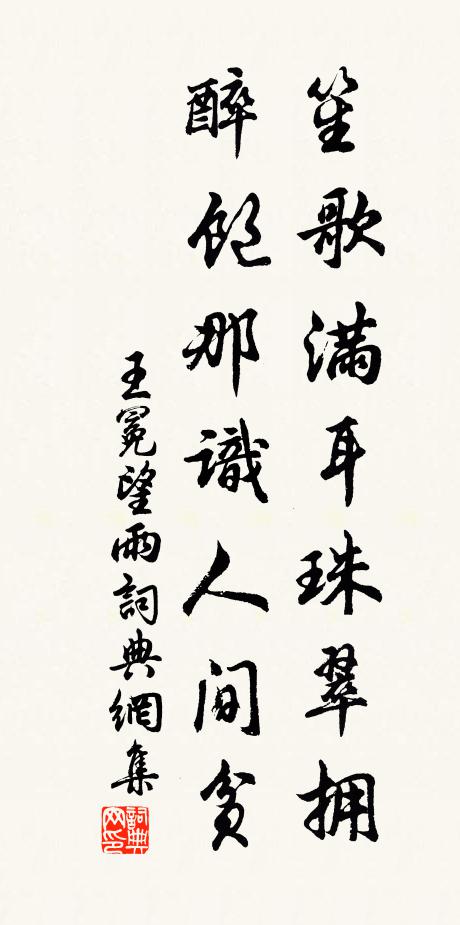 笙歌滿耳珠翠拥
醉飽那識人间貧
王冕望雨詞典網集
詞典网印